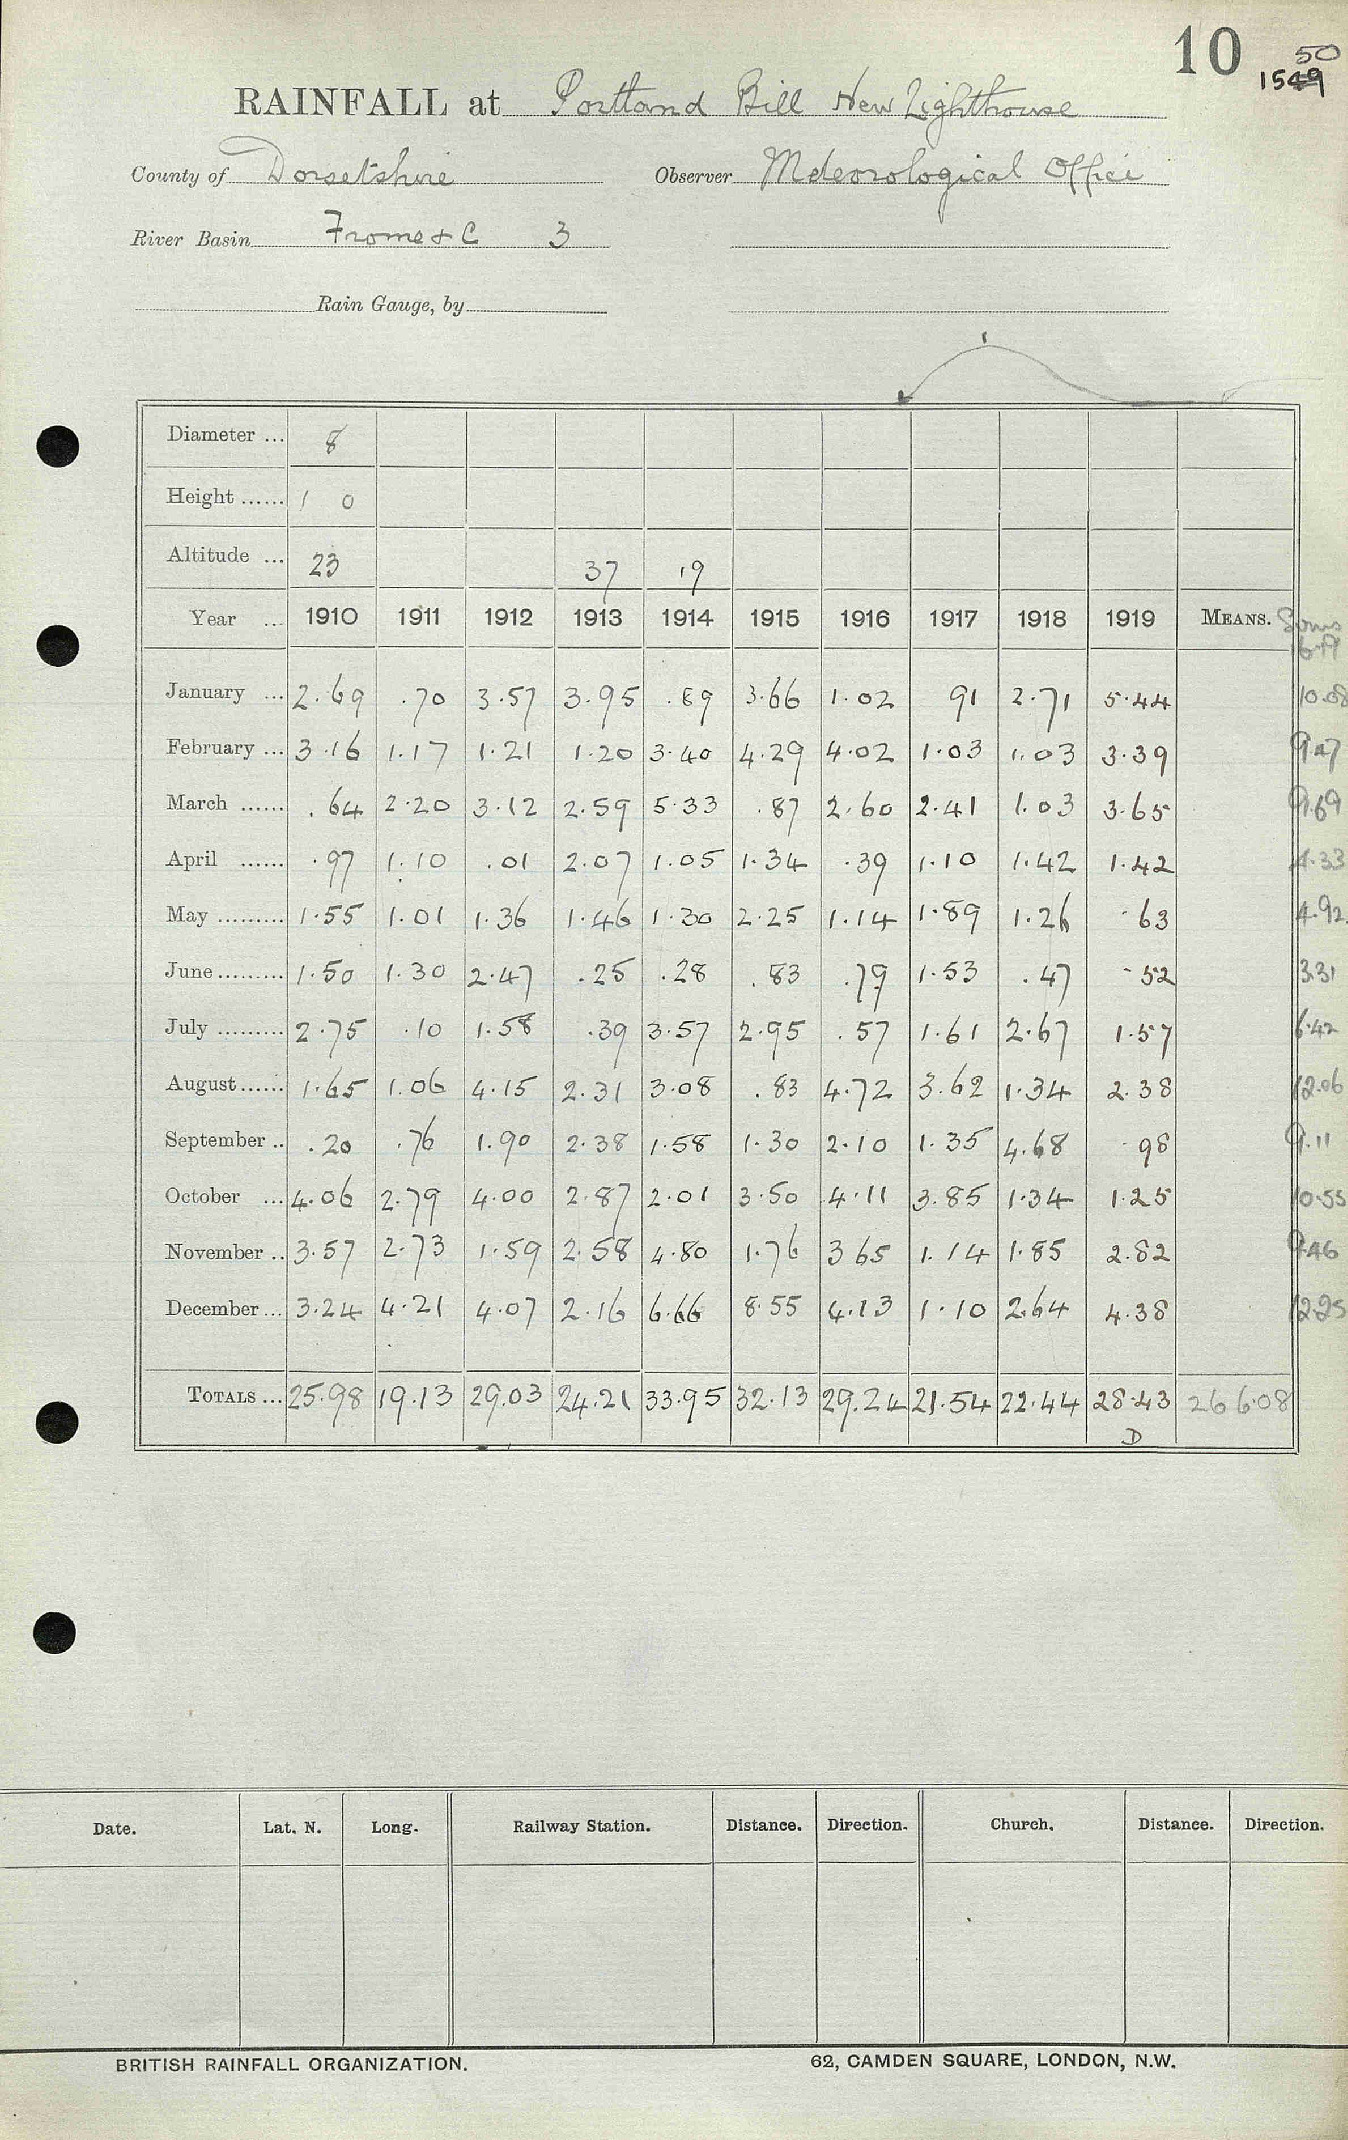 10
50
1549
RAINFALL at Portland Bill New Lighthouse
County of Dorsetshire Observer Meteorological Office
River Basin Frome & C 3
Rain Gauge, by
Diameter ... 8
Height ...... 1 0
Altitude ... 23 37 19
Year ... 1910 1911 1912 1913 1914 1915 1916 1917 1918 1919 MEANS. Sums
16-19
January ... 2.69 .70 3.57 3.95 .89 3.66 1.02 91 2.71 5.44 10.08
February ... 3.16 1.17 1.21 1.20 3.40 4.29 4.02 1.03 1.03 3.39 9.47
March ...... .64 2.20 3.12 2.59 5.33 .87 2.60 2.41 1.03 3.65 9.69
April ...... .97 1.10 .01 2.07 1.05 1.34 .39 1.10 1.42 1.42 4.33
May ......... 1.55 1.01 1.36 1.46 1.30 2.25 1.14 1.89 1.26 .63 4.92
June ......... 1.50 1.30 2.47 .25 .28 .83 .79 1.53 .47 .52 3.31
July ......... 2.75 .10 1.58 .39 3.57 2.95 .57 1.61 2.67 1.57 6.42
August ...... 1.65 1.06 4.15 2.31 3.08 .83 4.72 3.62 1.34 2.38 12.06
September .. .20 .76 1.90 2.38 1.58 1.30 2.10 1.35 4.68 .98 9.11
October ... 4.06 2.79 4.00 2.87 2.01 3.50 4.11 3.85 1.34 1.25 10.55
November .. 3.57 2.73 1.59 2.58 4.80 1.76 3 65 1.14 1.85 2.82 9.46
December ... 3.24 4.21 4.07 2.16 6.66 8.55 4.13 1.10 2.64 4.38 12.25
TOTALS ... 25.98 19.13 29.03 24.21 33.95 32.13 29.24 21.54 22.44 28.43 266.08
D
Date. Lat. N. Long. Railway Station. Distance. Direction. Church. Distance. Direction.
BRITISH RAINFALL ORGANIZATION. 62, CAMDEN SQUARE, LONDON, N.W.